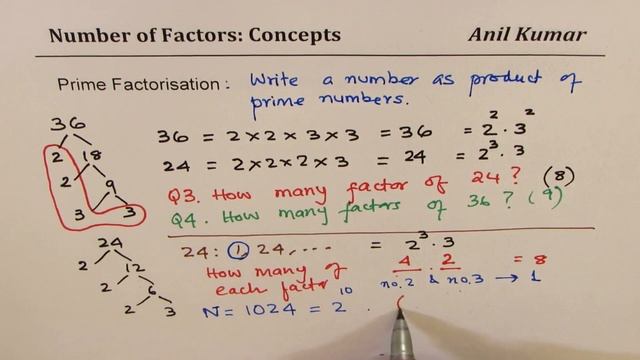 Number of Factors: Concepts Anil Kumar
Prime Factorisation : Write a number as product of
prime numbers.
36
2 18
2 9
3 3
36 = 2 × 2 × 3 × 3 = 36 = 2² · 3²
24 = 2 × 2 × 2 × 3 = 24 = 2³ · 3
Q3. How many factor of 24 ? (8)
Q4. How many factors of 36 ? (9)
24
2 12
2 6
2 3
24: 1, 24, ... = 2³ · 3
How many of 4 · 2 = 8
each factor no.2 & no.3 → 1
N = 1024 = 2¹⁰ .